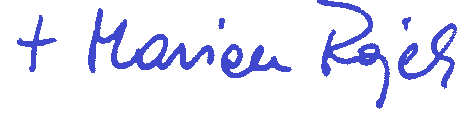 + Marian Rojek